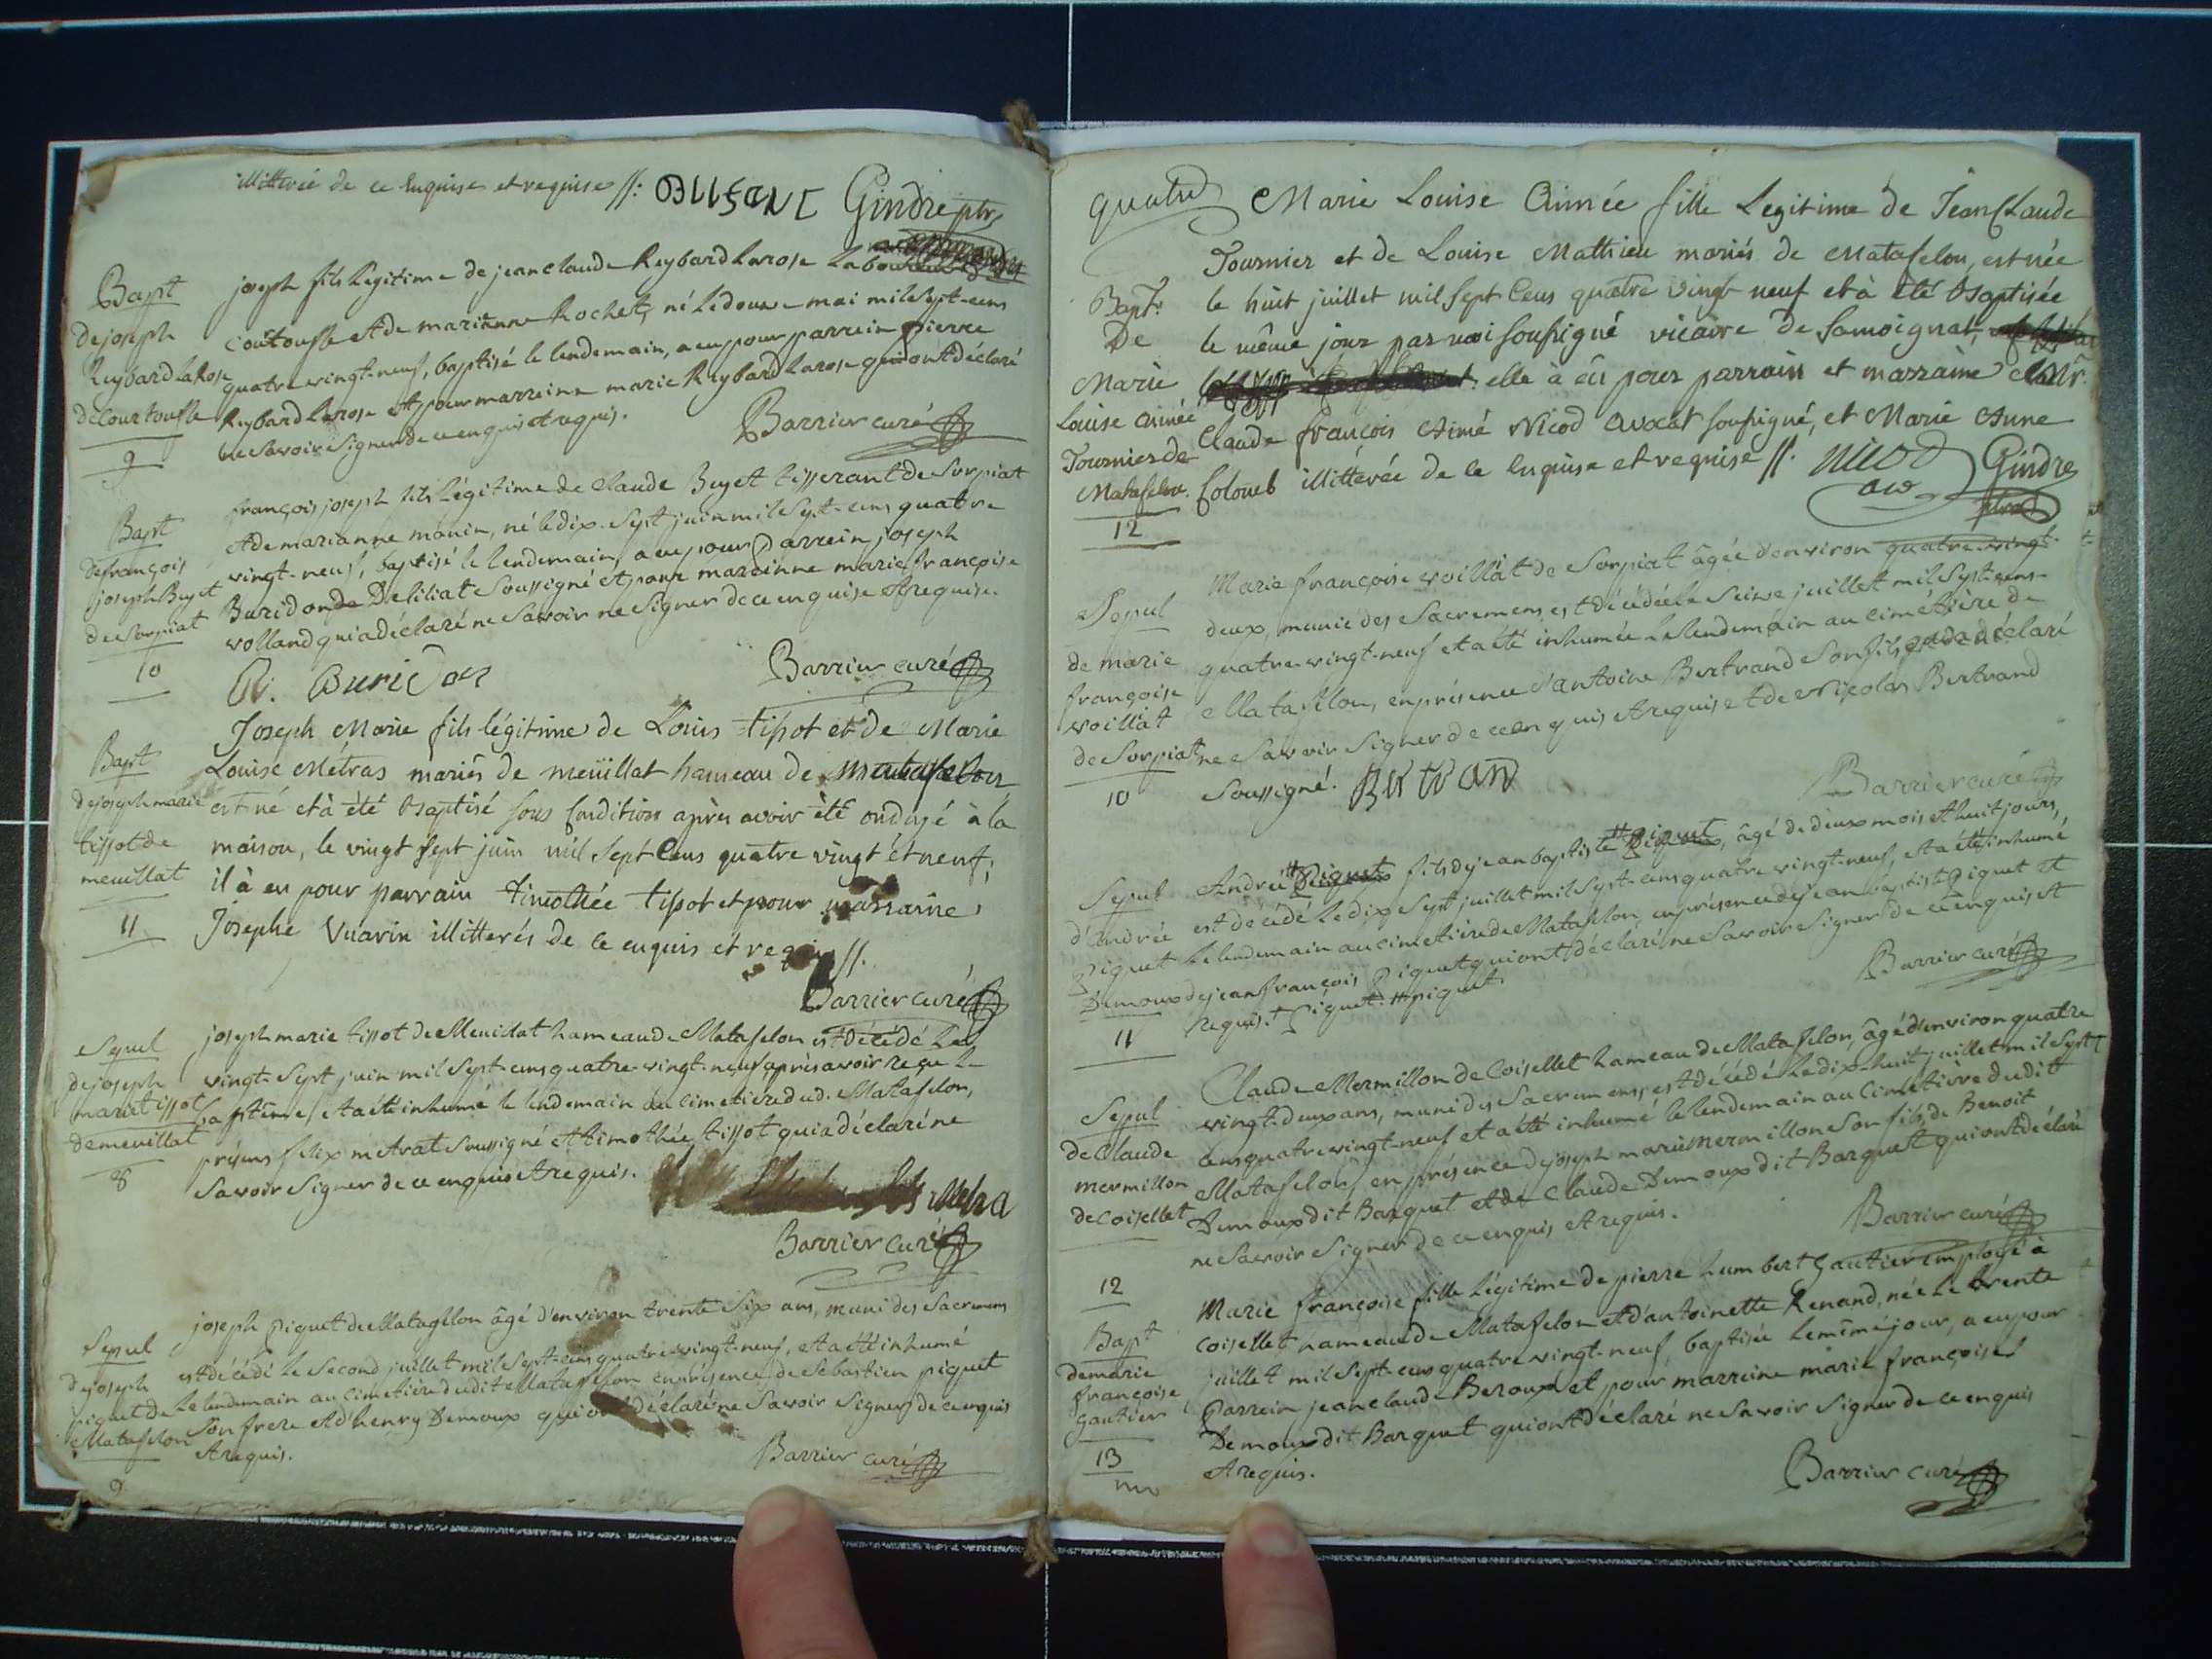 illitterée de ce enquise et requise //. Gindre ptre
Bapt
de joseph
Reybard la Rose
de courtoufle
9
joseph fils légitime de jean claude Reybard larose laboureur
coutoufle et de marianne Rochet, né le douze mai mil sept-cens
quatre vingt-neuf, baptisé le lendemain, a eu pour parrein pierre
Reybard larose et pour marreine marie Reybard larose qui ont déclaré
ne savoir signer de ce enquis et requis. Barrier curé
Bapt
de françois
joseph Buget
de Sorpiat
10
françois joseph fils légitime de claude Buget tisserant de Sorpiat
et de marianne monin, né le dix-sept juin mil sept-cens quatre
vingt-neuf, baptisé le lendemain, a eu pour parrein joseph
Buridon de Deliliat soussigné et pour marreinne marie françoise
volland qui a déclaré ne savoir ne signer de ce enquise et requise.
Buridon Barrier curé
Bapt
de joseph marie
tissot de
meuillat
11
Joseph Marie fils légitime de Louis tissot et de Marie
Louise Métras mariés de meüillat hameau de matafelon
est né et à été baptisé sous condition après avoir été ondoyé à la
maison, le vingt sept juin mil sept cens quatre vingt et neuf;
il à eu pour parrain timothée tissot et pour marraine
Josephe Vuarin illitterés de ce enquis et requis //.
Barrier curé
Sepul
de joseph
marie tissot
de meuillat
8
joseph marie tissot de Meuillat hameau de Matafelon est décédé le
vingt-sept juin mil sept-cens quatre-vingt-neuf après avoir reçu le
baptême, et a été inhumé le lendemain au cimetiere dud. Matafelon,
présens felix metrat soussigné et timothée tissot qui a déclaré ne
savoir signer de ce enquis et requis. Metra
Barrier curé
Sepul
de joseph
piquet de
Matafelon
9
joseph piquet de Matafelon âgé d'environ trente six ans, muni des sacremens
est décédé le second juillet mil sept-cens quatre-vingt-neuf, et a été inhumé
le lendemain au cimetiere dudit Matafelon en présence de Sébastien piquet
son frere et d'henry Demoux qui ont déclaré ne savoir signer de ce enquis
et requis. Barrier curé
quatre
Bapt.
De
Marie
Louise aimée
Tournier de
Matafelon.
12
Marie Louise Aimée fille Legitime de Jean Claude
Tournier et de Louise Mathieu mariés de Matafelon, est née
le huit juillet mil sept Cens quatre vingt neuf et à été baptisée
le même jour par moi soussigné vicaire de Samoignat,
elle à eü pour parrain et marraine Mr.
Claude françois Aimé Nicod avocat soussigné, et Marie Anne
Colomb illitérée de ce enquise et requise //. Nicod Gindre
av ptre
Sepul
de marie
françoise
voillat
de Sorpiat
10
Marie françoise voillat de Sorpiat âgée d'environ quatre-vingt-
deux, munie des sacremens, est décédée le seize juillet mil sept-cens-
quatre-vingt-neuf et a été inhumée le lendemain au cimétière de
Matafelon, en présence d'antoine Bertrand son fils qui a déclaré
ne savoir signer de ce enquis et requis et de Nicolas Bertrand
soussigné. Bertrand
Barrier curé
Sepul
d'andrée
piquet
11
André piquet fils de jean baptiste piquet, âgé de deux mois et huit jours,
est décédé le dix sept juillet mil sept-cens quatre vingt-neuf, et a été inhumé
le lendemain au cimetiere de Matafelon, en présence de jean baptiste piquet et
Demoux de jean françois piquet qui ont déclaré ne savoir signer de ce enquis et
requis. piquet. piquet. Barrier curé
Sepul
de Claude
mermillon
de Coisellet
12
Claude Mermillon de Coisellet hameau de Matafelon, âgé d'environ quatre
vingt-deux ans, muni des sacremens, est décédé le dix-huit juillet mil sept
cens quatre vingt-neuf et a été inhumé le lendemain au cimetière dudit
Matafelon, en présence de joseph marie mermillon son fils, de Benoit
Demoux dit Barquet et de Claude Demoux dit Barquet qui ont déclaré
ne savoir signer de ce enquis et requis. Barrier curé
Bapt
de marie
françoise
gautier
13
Marie françoise fille légitime de pierre humbert gautier employé à
coisellet hameau de Matafelon et d'antoinette Renand, née le trente
juillet mil sept-cens quatre vingt-neuf, baptisée le même jour, a eu pour
parrein jean claude Beroux et pour marreine marie françoise
Demoux dit Barquet qui ont déclaré ne savoir signer de ce enquis
et requis. Barrier curé